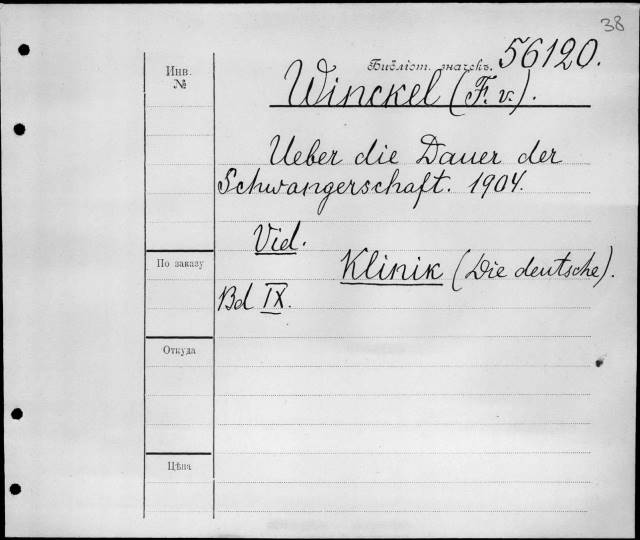 38
Инв.
№
Библіот. значекъ. 56120.
Winckel (F. v.).
Ueber die Dauer der
Schwangerschaft. 1904.
Vid.
Klinik (Die deutsche).
Bd IX.
По заказу
Откуда
Цѣна